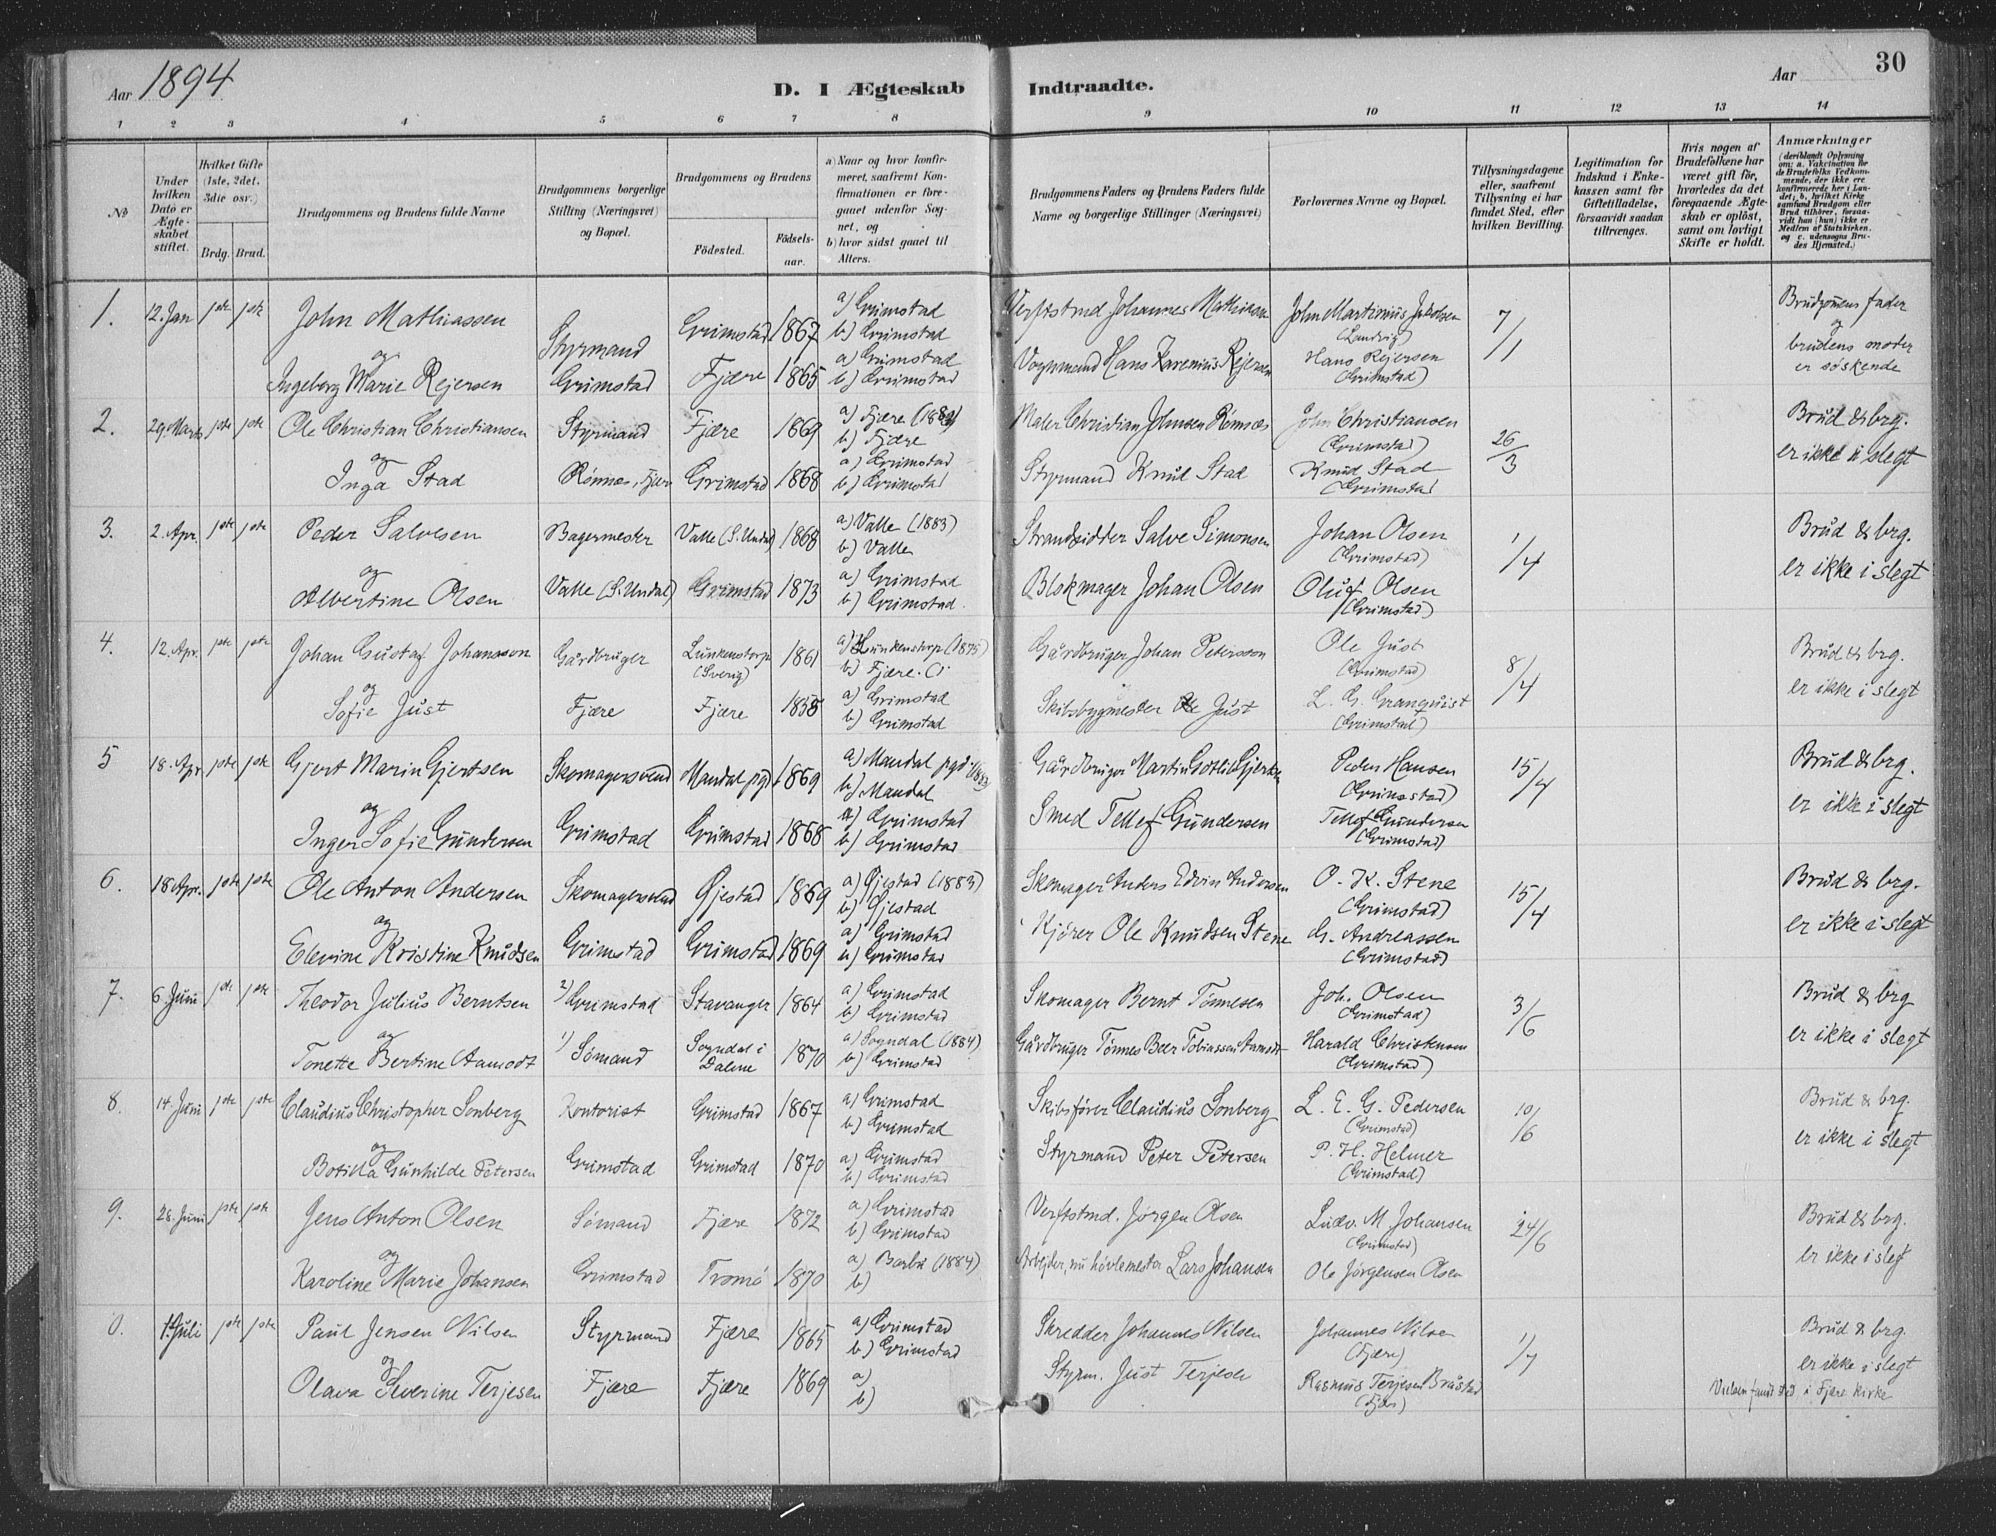 Aar 1894 D. I Ægteskab Indtraadte. Aar 30
1 2 3 4 5 6 7 8 9 10 11 12 13 14
No
Under hvilken Dato er Ægteskabet stiftet.
Hvilket Gifte (1ste, 2det, 3die osv.)
Brdg. Brud.
Brudgommens og Brudens fulde Navne
Brudgommens borgerlige Stilling (Næringsvei) og Bopæl.
Brudgommens og Brudens
Födested. Födselsaar.
a) Naar og hvor konfirmeret, saafremt Konfirmationen er foregaaet udenfor Sognet, og
b) hvor sidst gaaet til Alters.
Brudgommens Faders og Brudens Faders fulde Navne og borgerlige Stillinger (Næringsvei)
Forlovernes Navne og Bopæl.
Tillysningsdagene eller, saafremt Tillysning ei har fundet Sted, efter hvilken Bevilling.
Legitimation for Indskud i Enkekassen samt for Giftetilladelse, forsaavidt saadan tiltrænges.
Hvis nogen af Brudefolkene har været gift för, hvorledes da det foregaaende Ægteskab er oplöst, samt om lovligt Skifte er holdt.
Anmærkninger (deriblandt Oplysning om: a. Vakcination for de Brudefolks Vedkommende, der ikke ere konfirmerede her i Landet; b. hvilket Kirkesamfund Brudgom eller Brud tilhörer, forsaavidt han (hun) ikke er Medlem af Statskirken, og c. udensogns Brudes Hjemsted.)
1. 12. Jan 1ste 1ste John Mathiassen Styrmand Grimstad 1867 a) Grimstad b) Grimstad Verftsmd Johannes Mathiasen John Martinius Jakobsen (Landvig) 7/1 Brudgomens fader
og Ingeborg Marie Rejersen Grimstad Fjære 1865 a) Grimstad b) Grimstad Vognmand Hans Karenius Rejersen Hans Rejersen (Grimstad) og brudens moder er søskende
2. 29. Marts 1ste 1ste Ole Christian Christiansen Styrmand Fjære 1869 a) Fjære b) Fjære Maler Christian Johnsen Rønnæs John Christiansen (Grimstad) 26/3 Brud & brg.
og Inga Stad Rønnes, Fjære Grimstad 1868 a) Grimstad b) Grimstad Styrmand Knud Stad Knud Stad (Grimstad) er ikke i slegt
3. 2. Apr. 1ste 1ste Peder Salvesen Bagermester Valle (S. Undal) 1868 a) Valle (1883) b) Valle Strandsidder Salve Simonsen Johan Olsen (Grimstad) 1/4 Brud & brg.
og Albertine Olsen Valle (S. Undal) Grimstad 1873 a) Grimstad b) Grimstad. Blokmager Johan Olsen Oluf Olsen (Grimstad) er ikke i slegt
4. 12. Apr. 1ste 1ste Johan Gustaf Johansson Gårdbruger Lunkenstorp (Sverig) 1861 a) Lunkenstorp (1875) b) Fjære. Gårdbruger Johan Petersson Ole Just (Grimstad) 8/4 Brud & brg.
og Sofie Just Fjære Fjære 1858 a) Grimstad b) Grimstad Skibsbygmester Ole Just L. G. Granquist (Grimstad) er ikke i slegt
5 18. Apr 1ste 1ste Gjert Marin Gjertsen Skomagersvend Mandal pgd 1869 a) Mandal pgd. b) Mandal Gårdbruger Martin Gjertsen Peder Hansen (Grimstad) 15/4 Brud & brg.
og Inger Sofie Gundersen Grimstad Grimstad 1868 a) Grimstad b) Grimstad Smed Tellef Gundersen Tellef Gundersen (Grimstad) er ikke i slegt
6. 18 Apr. 1ste 1ste Ole Anton Andersen Skomagersvend Øjestad 1869 a) Øjestad (1883) b) Øjestad Skomager Anders Edvin Andersen O. K. Stene (Grimstad) 15/4 Brud & brg.
og Elevine Kristine Knudsen Grimstad Grimstad 1869 a) Grimstad b) Grimstad Kjører Ole Knudsen Stene G. Andreassen (Grimstad) er ikke i slegt
7. 6. Juni 1ste 1ste Theodor Julius Berntsen 2) Grimstad Stavanger 1864 a) Grimstad b) Grimstad Skomager Bernt Tönnesen Joh. Olsen (Grimstad) 3/6 Brud & brg
og Tonette Bertine Aamodt 1) Sömand Sogndal i Dalene 1870 a) Sogndal (1884) b) Grimstad Gårdbruger Tönnes Beer Tobiassen Aamodt Harald Christensen (Grimstad) er ikke i slegt
8. 14. Juni 1ste 1ste Claudius Christopher Sonberg Kontorist Grimstad 1867 a) Grimstad b) Grimstad Skibsfører Claudius Sonberg L. E. G. Pedersen (Grimstad) 10/6 Brud & brg.
og Botilda Gunhilde Petersen Grimstad Grimstad 1870 a) Grimstad b) Grimstad Styrmand Peter Petersen P. H. Helmer (Grimstad) er ikke i slegt
9. 28. Juni 1ste 1ste Jens Anton Olsen Sömand Fjære 1872 a) Grimstad b) Grimstad Verftsmd. Jörgen Olsen Ludv. M. Johansen (Grimstad) 24/6 Brud & brg.
og Karoline Marie Johansen Grimstad Tromö 1870 a) Barbu (1884) b) Arbejder, nu hövlemester Lars Johansen Ole Jörgensen Olsen er ikke i slegt
0. Juli 1ste 1ste Paul Jensen Nilsen Styrmand Fjære 1865 a) Grimstad b) Grimstad Skredder Johannes Nilsen Johannes Nilsen (Fjære) 1/7 Brud & brg.
og Olava Severine Terjesen Fjære Fjære 1869 a) b) Styrm. Just Terjesen Rasmus Terjesen Bråstad (Fjære) er ikke i slegt
Vielsen fandt sted i Fjære kirke